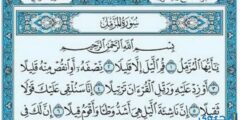 سُورَةُ الْمُزَّمِّلِ
بِسْمِ اللَّهِ الرَّحْمَٰنِ الرَّحِيمِ
يَا أَيُّهَا الْمُزَّمِّلُ ١ قُمِ اللَّيْلَ إِلَّا قَلِيلًا ٢ نِصْفَهُ أَوِ انْقُصْ مِنْهُ قَلِيلًا
٣ أَوْ زِدْ عَلَيْهِ وَرَتِّلِ الْقُرْآنَ تَرْتِيلًا ٤ إِنَّا سَنُلْقِي عَلَيْكَ قَوْلًا
ثَقِيلًا ٥ إِنَّ نَاشِئَةَ اللَّيْلِ هِيَ أَشَدُّ وَطْئًا وَأَقْوَمُ قِيلًا ٦ إِنَّ لَكَ فِي